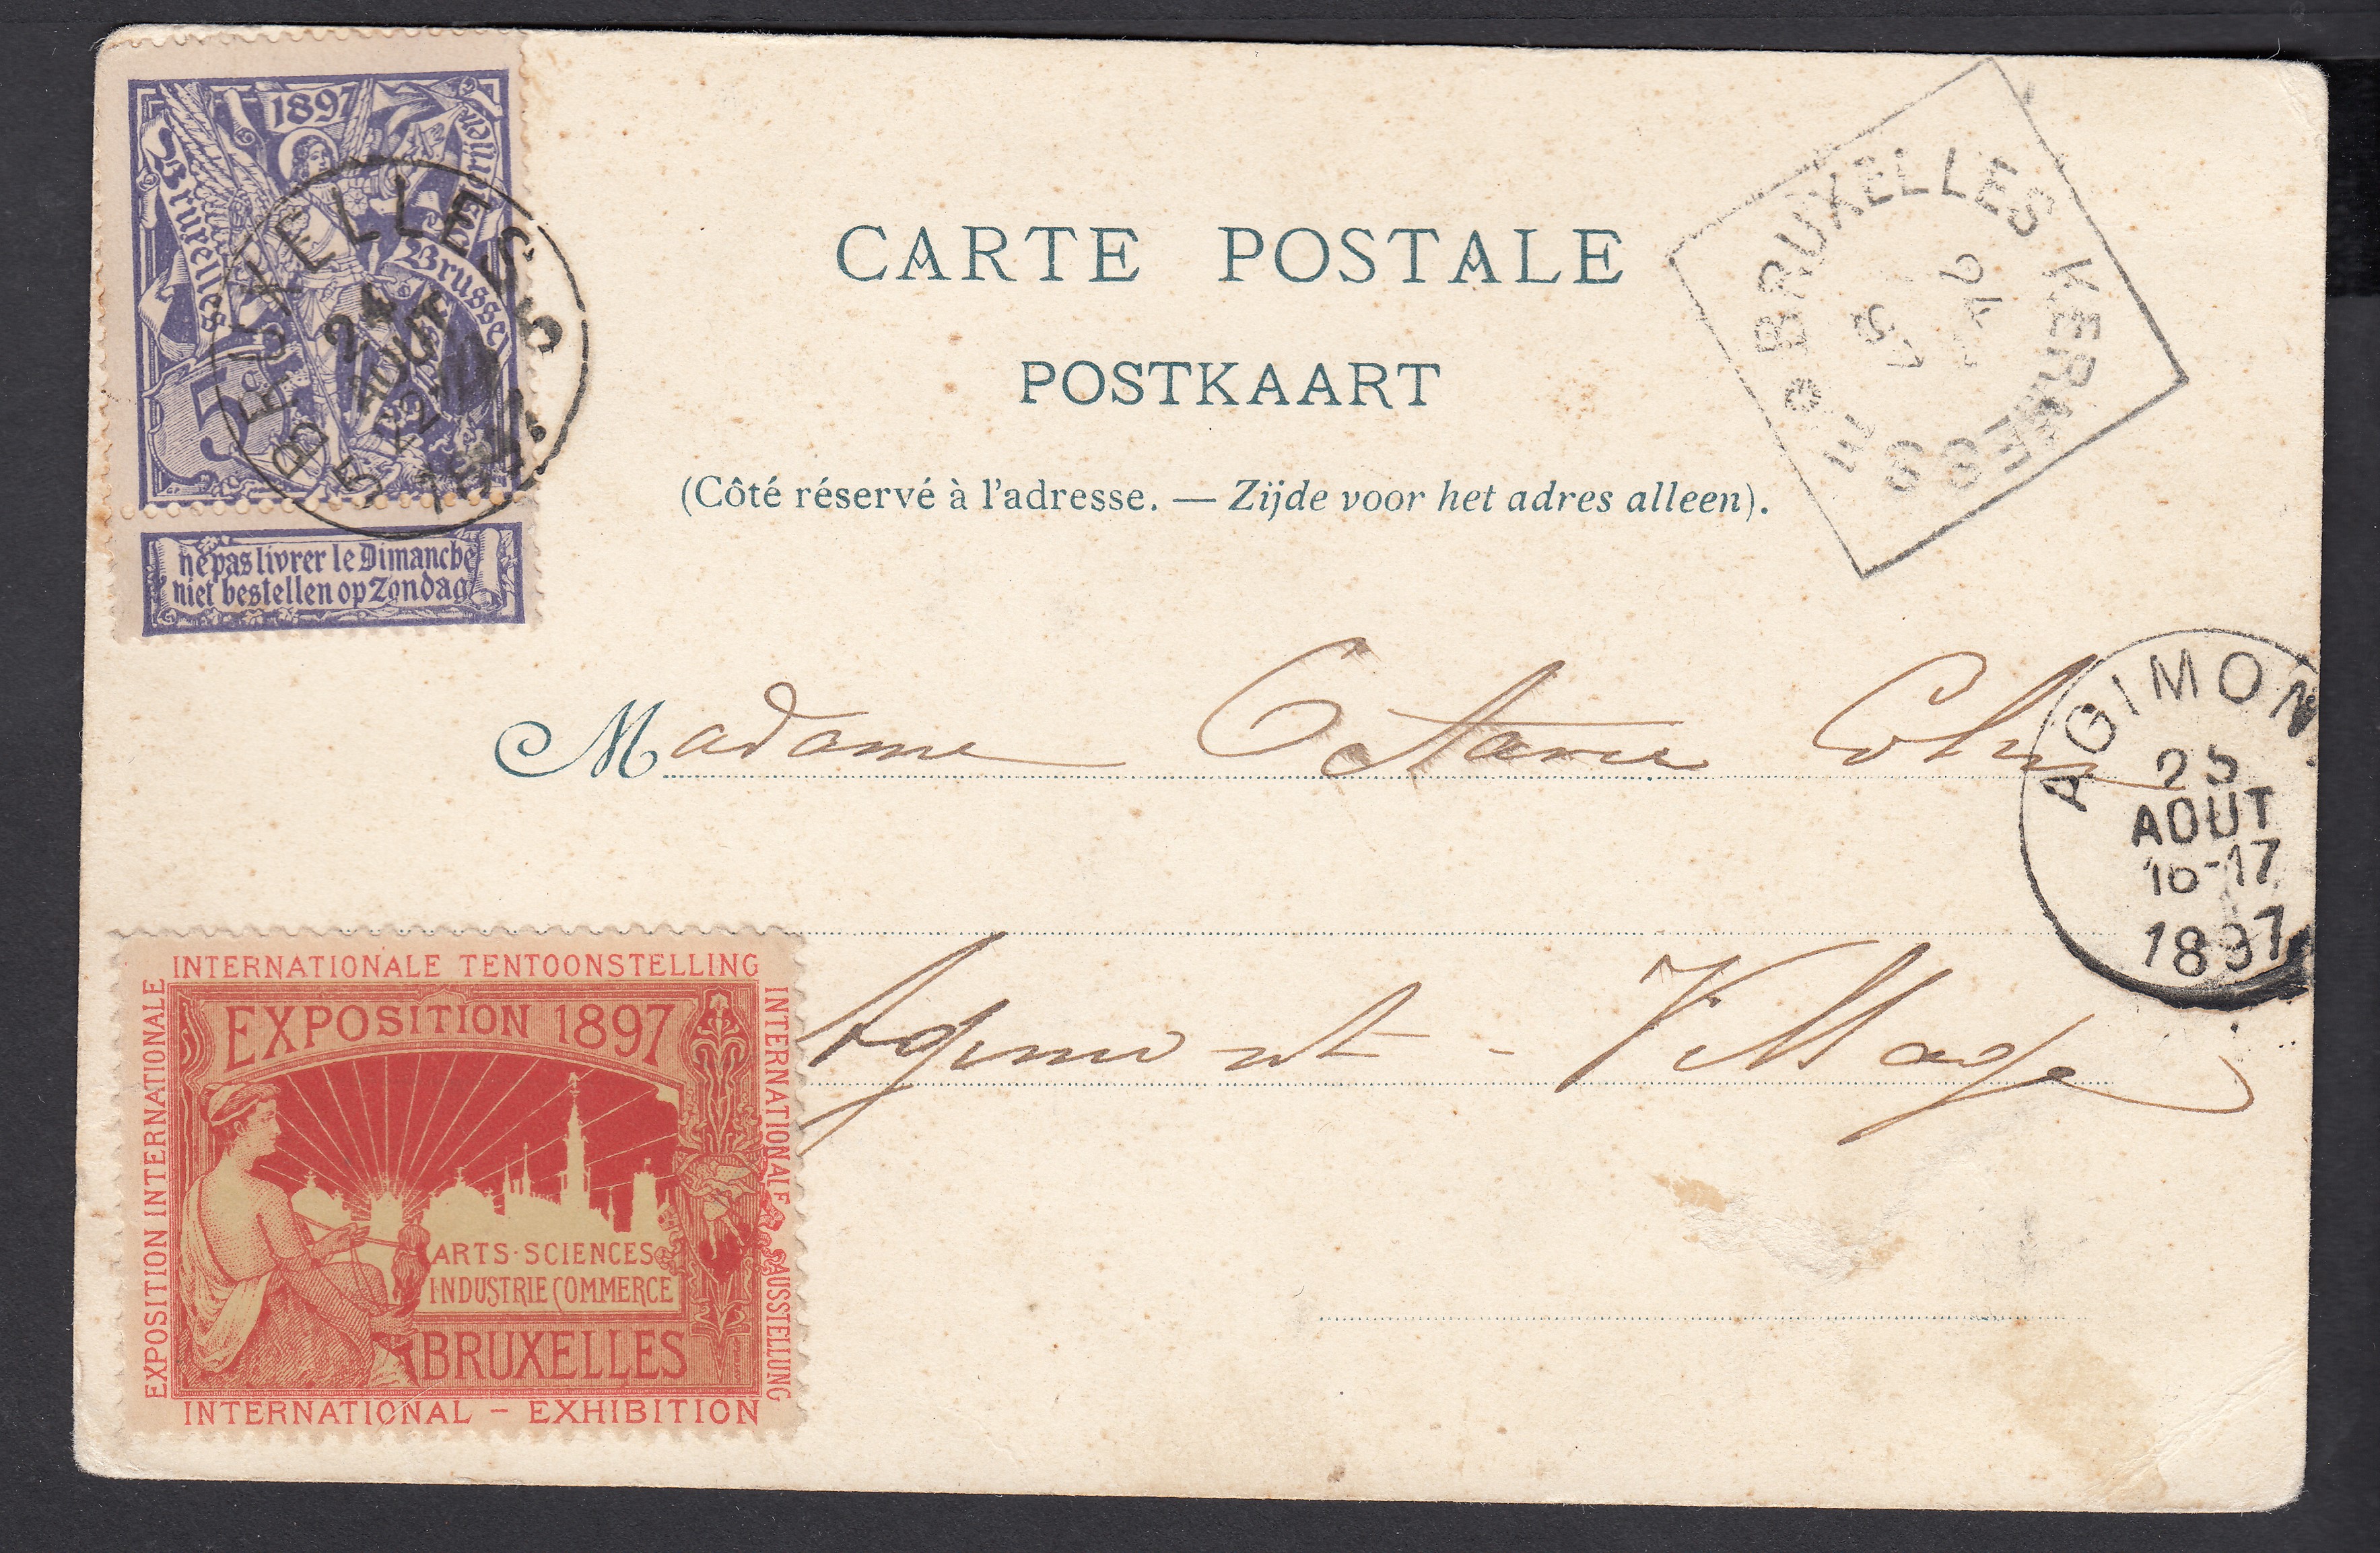 1897
Bruxelles
Brussel
5
ne pas livrer le Dimanche
niet bestellen op Zondag
BRUXELLES 5
24
AOUT
1897
CARTE POSTALE
POSTKAART
(Côté réservé à l'adresse. — Zijde voor het adres alleen).
BRUXELLES KERMESSE
Madame Octavie Colin
AGIMONT
25
AOUT
16-17
1897
Agimont - Village
INTERNATIONALE TENTOONSTELLING
EXPOSITION INTERNATIONALE
EXPOSITION 1897
ARTS·SCIENCES
INDUSTRIE COMMERCE
BRUXELLES
INTERNATIONALE AUSSTELLUNG
INTERNATIONAL - EXHIBITION